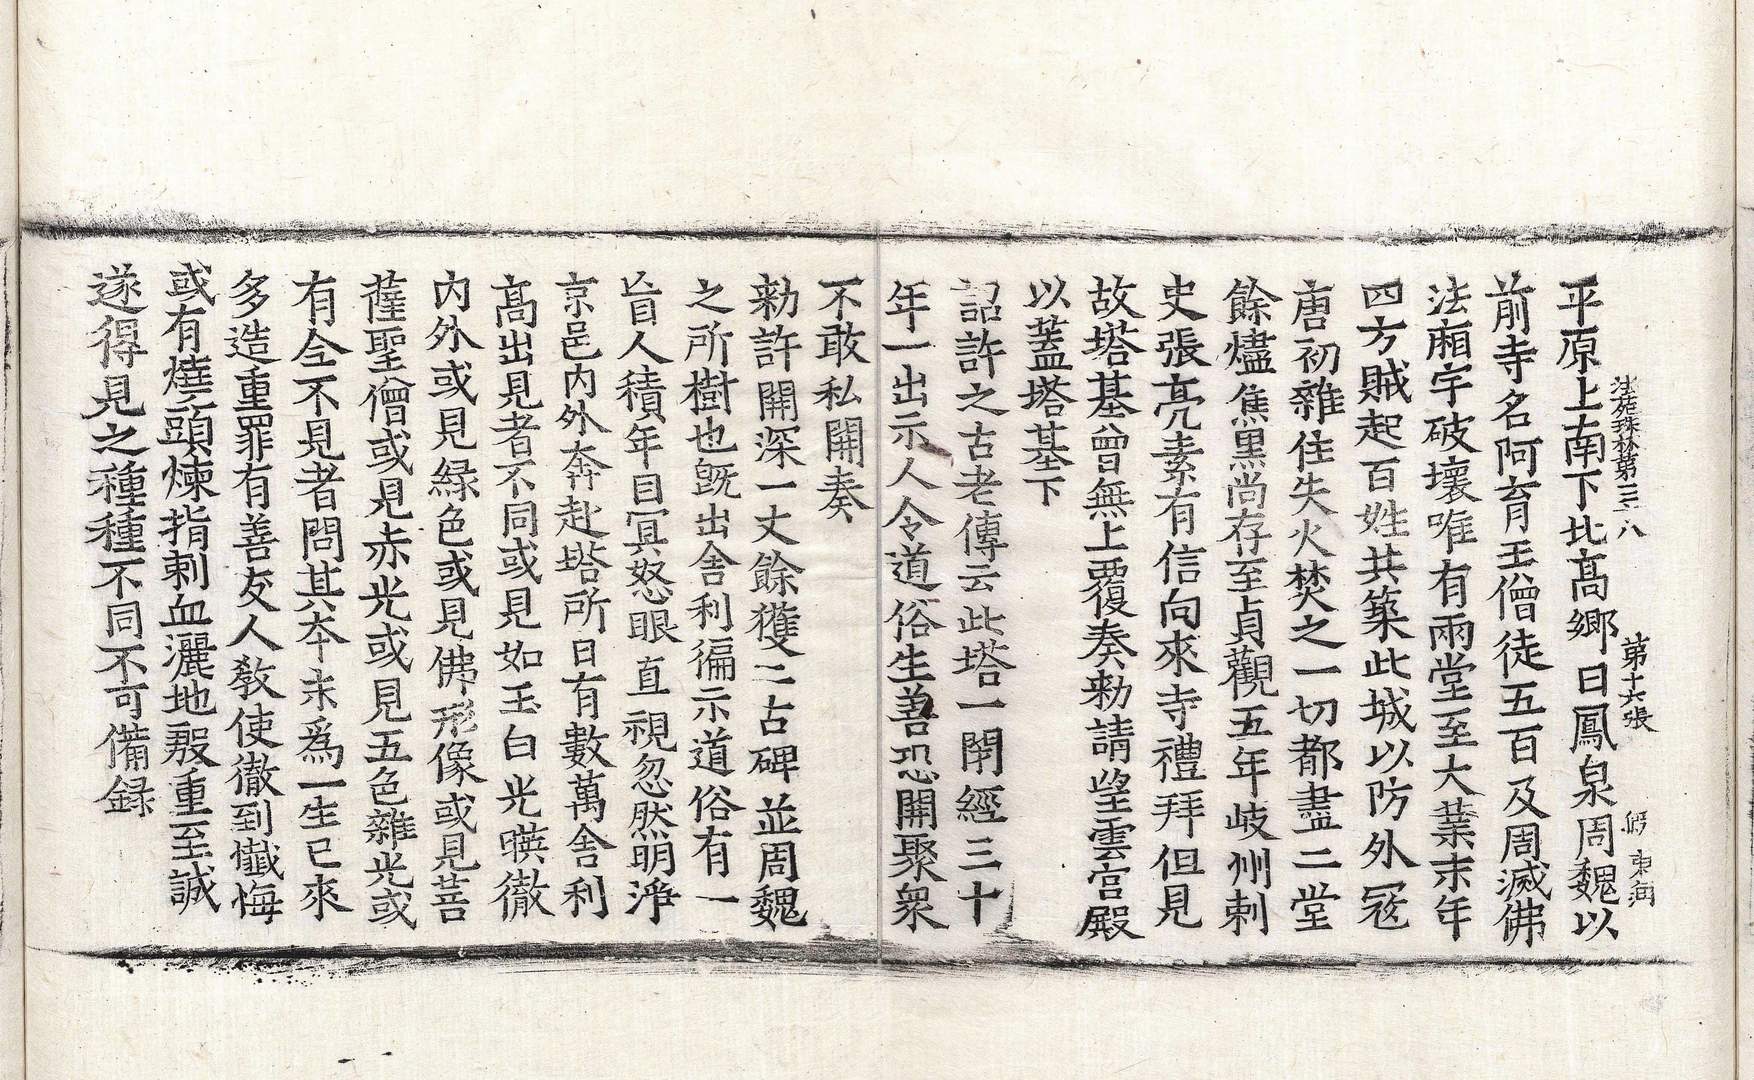 平原上南下北髙鄉曰鳳泉周魏以
法苑珠林第三八　第十六張
前寺名阿育王僧徒五百及周滅佛
法廂宇破壞唯有兩堂至大業末年
四方賊起百姓共築此城以防外冦
唐初雜住失火焚之一切都盡二堂
餘燼焦黑尚存至貞觀五年岐州刺
史張亮素有信向來寺禮拜但見
故塔基曾無上覆奏勑請望雲宮殿
以蓋塔基下
詔許之古老傳云此塔一閇經三十
年一出示人令道俗生善恐開聚衆
不敢私開奏
勑許開深一丈餘獲二古碑並周魏
之所樹也旣出舍利徧示道俗有一
盲人積年目冥怒眼直視忽然明淨
京邑內外奔赴塔所日有數萬舍利
髙出見者不同或見如玉白光暎徹
內外或見綠色或見佛形像或見菩
薩聖僧或見赤光或見五色雜光或
有全不見者問其本末爲一生已來
多造重罪有善友人敎使徹到懺悔
或有燒頭煉指刺血灑地殷重至誠
遂得見之種種不同不可備録